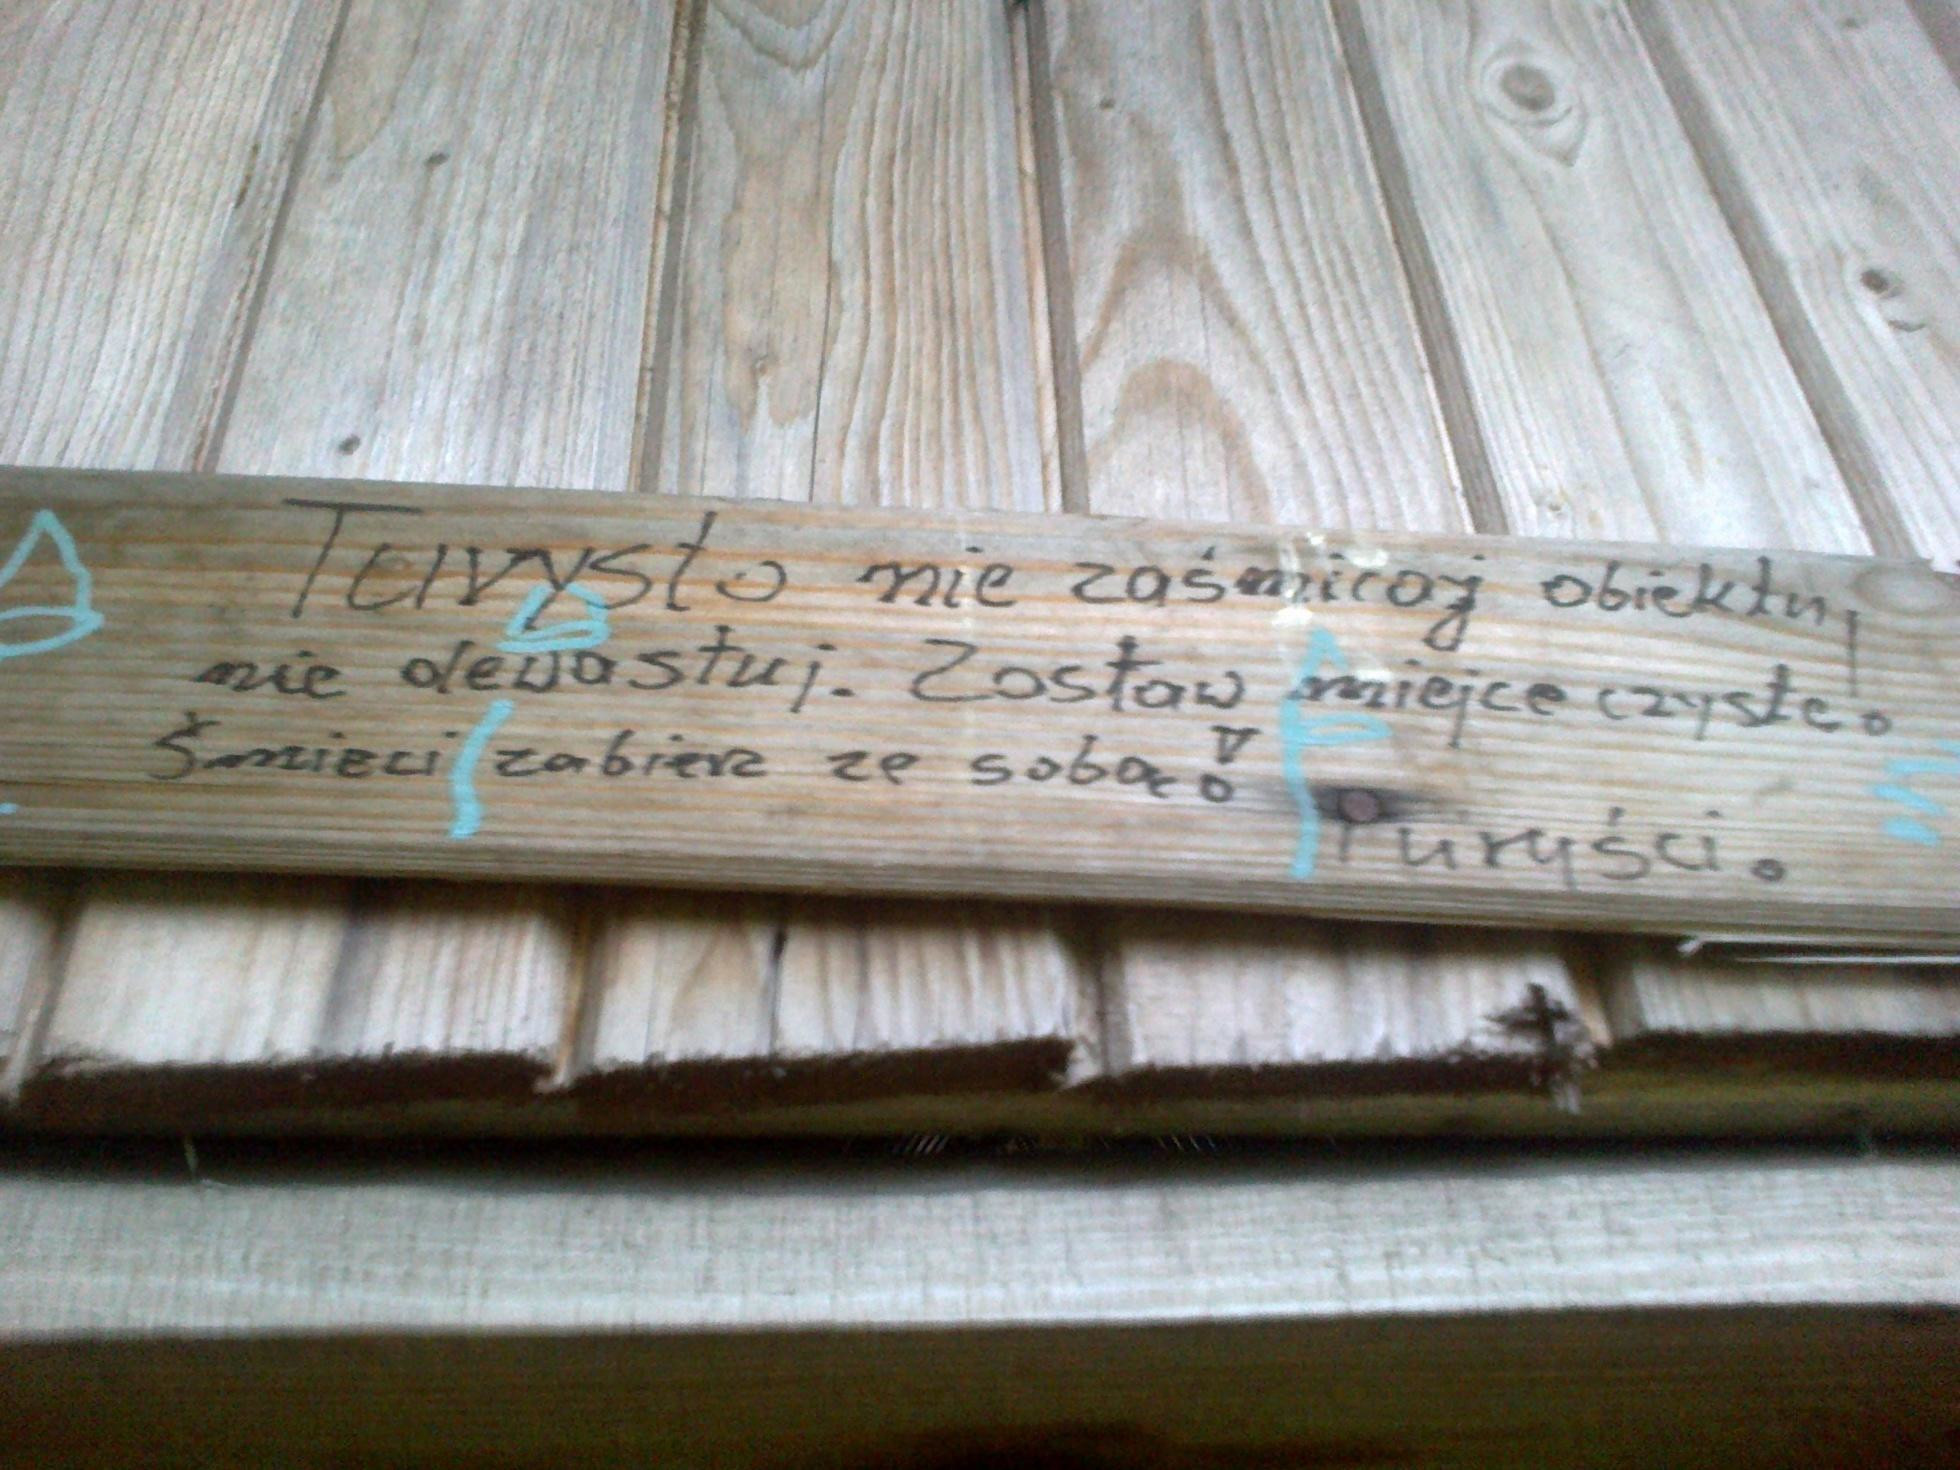 Turysto nie zaśmicaj obiektu,
nie dewastuj. Zostaw miejce czyste.
Śmieci zabierz ze sobą!
Turyści.